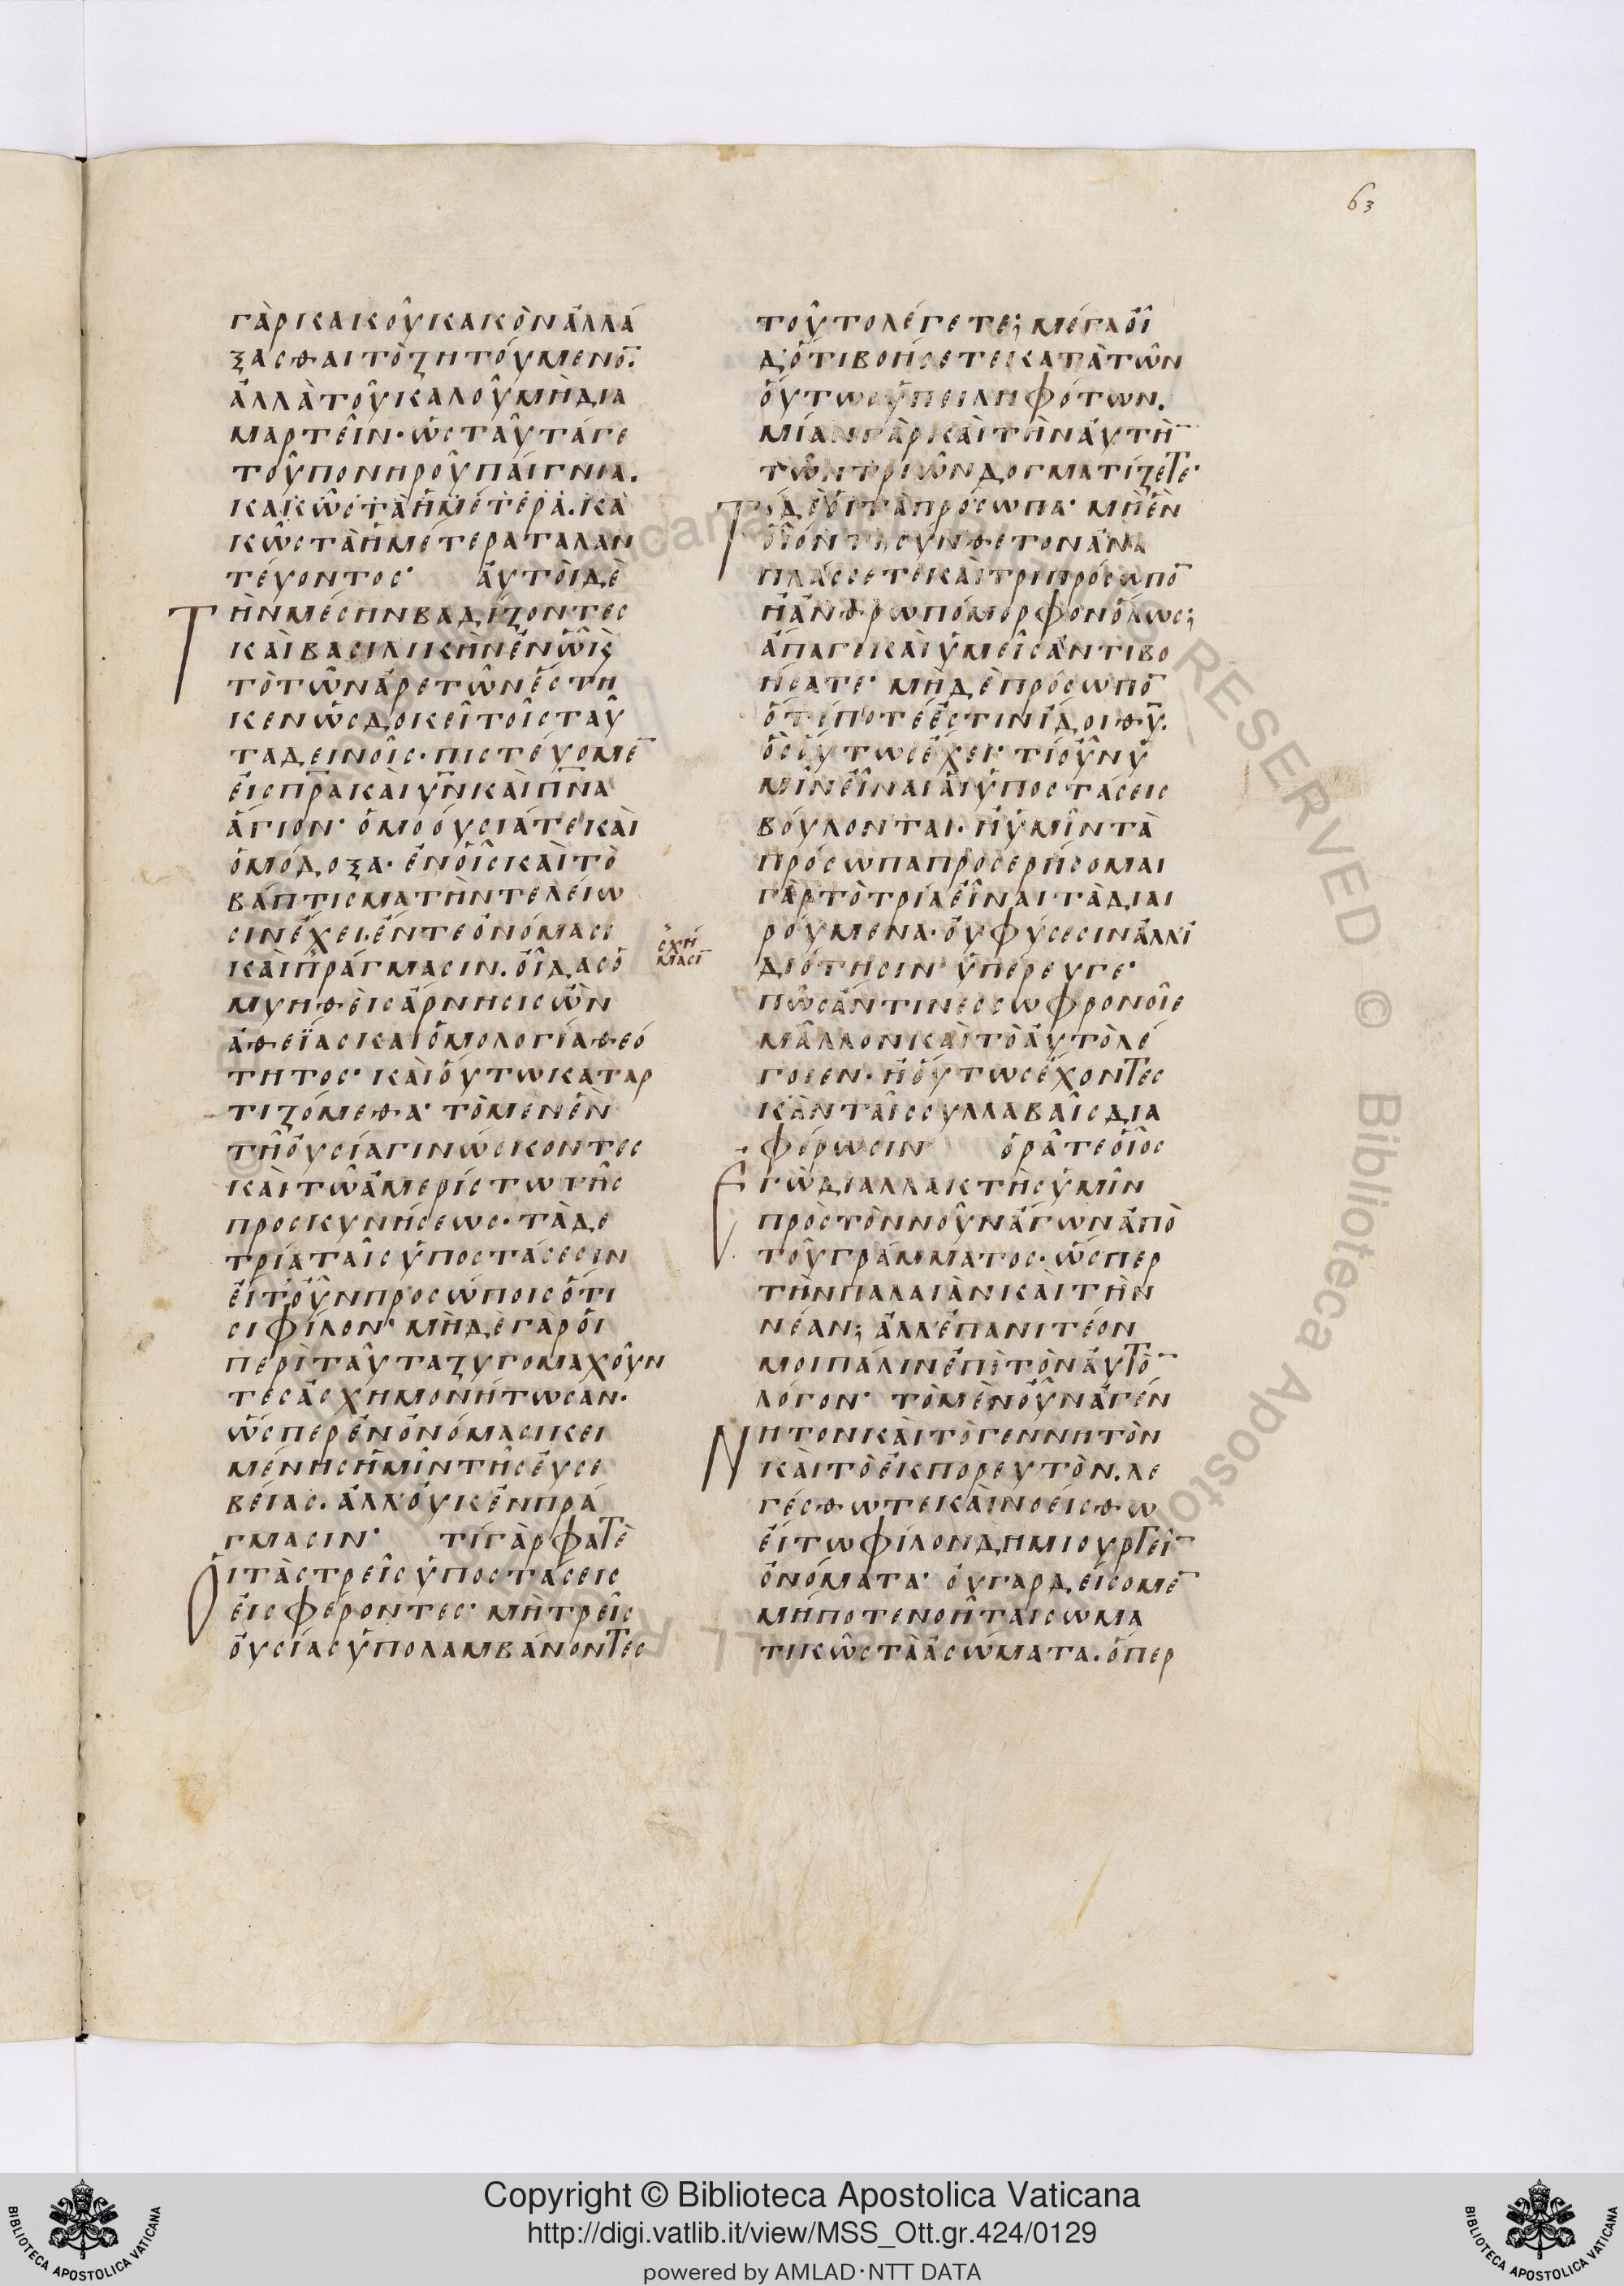 63
γὰρ κακοῦ κακὸν ἀλλά
ξασθαι τὸ ζητούμενο̅·
ἀλλὰ τοῦ καλοῦ μὴ δια
μαρτεῖν· ὡς ταῦτά γε
τοῦ πονηροῦ παίγνια.
κακῶς τὰ ἡμέτερα. κα
κῶς τὰ ἡμέτερα ταλαν
τεύοντος· αὐτοὶ δὲ
Τὴν μέσην βαδίζοντες
καὶ βασιλικὴν ἐν ᾧ κς̀
τὸ τῶν ἀρετῶν ἔστη
κεν ὡς δοκεῖ τοῖς ταῦ
τα δεινοῖς· πιστεύομε̅
εἰς π̅ρ̅α καὶ υ̅ν̅ καὶ π̅ν̅α
ἅγιον· ὁμοούσιά τε καὶ
ὁμόδοξα· ἐν οἷς καὶ τὸ
βάπτισμα τὴν τελείω
σιν ἔχει. ἔν τε ὀνόμασι
καὶ πράγμασιν. οἶδας ὁ
σχή
μασι̅
μυηθεὶς ἄρνησις ὢν
ἀθεΐας καὶ ὁμολογία θεό
τητος· καὶ οὕτω καταρ
τιζόμεθα· τὸ μὲν ἓν
τῇ οὐσίᾳ γινώσκοντες
καὶ τῷ ἀμερίστω τῆς
προσκυνήσεως· τὰ δὲ
τρία ταῖς ὑποστάσεσιν
εἴτ' οὖν προσώποις ὅ τι
σι φίλον· μὴδὲ γὰρ οἱ
περὶ ταῦτα ζυγομαχοῦν
τες ἀσχημονήτωσαν·
ὥσπερ ἐν ὀνόμασι κει
μένης ἡμῖν τῆς εὐσε
βείας. ἀλλ' οὐκ ἐν πρά
γμασιν· τί γὰρ φατὲ
Οἱ τὰς τρεῖς ὑποστάσεις
εἰσφέροντες· μὴ τρεῖς
οὐσίας ὑπολαμβάνοντες
τοῦτο λέγετε; μέγα οἶ
δ' ὅτι βοήσετε κατὰ τῶν
οὕτως ὑπειληφότων.
μίαν γὰρ καὶ τὴν αὐτὴ̅
τῶν τριῶν δογματίζετε·
Τί δὲ οἱ τὰ πρόσωπα· μὴ ἓν
οἷόν τι σύνθετον ἀνα
πλάσσετε καὶ τριπρόσωπο̅
ἢ ἀνθρωπόμορφον ὅλως;
ἄπαγε καὶ ὑμεῖς ἀντιβο
ήσατε· μὴ δὲ πρόσωπο̅
ὅ τί ποτέ ἐστιν ἴδοι θ̅υ̅.
ὃς οὕτως ἔχει· τί οὖν ὑ
μῖν εἶναι αἱ ὑποστάσεις
βούλονται. ἢ ὑμῖν τὰ
πρόσωπα προσερήσομαι
γὰρ τὸ τρία εἶναι τὰ διαι
ρούμενα. οὐ φύσεσιν ἀλλ' ἰ
διότησιν· ὑπέρευγε·
πῶς ἄν τινες σωφρονοῖε
μᾶλλον καὶ τὸ αὐτὸ λέ
γοιεν· ἢ οὕτως ἔχοντες
κἂν ταῖς συλλαβαῖς δια
φέρωσιν ὁρᾶτε οἷος
Ἐγὼ διαλλακτὴς ὑμῖν
πρὸς τὸν νοῦν ἄγων ἀπὸ
τοῦ γράμματος· ὥσπερ
τὴν παλαιὰν καὶ τὴν
νέαν; ἀλλ' ἐπανιτέον
μοι πάλιν ἐπὶ τὸν αὐτὸ̅
λόγον· τὸ μὲν οὖν ἀγέν
Νητον καὶ τὸ γεννητὸν
καὶ τὸ ἐκπορευτὸν. λε
γέσθω τε καὶ νοείσθω
εἴ τω φίλον δημιουργεῖ̅
ὀνόματα· οὐ γὰρ δείσομε̅
μήποτε νοῆται σωμα
τικῶς τὰ ἀσώματα. ὅπερ
Copyright © Biblioteca Apostolica Vaticana
http://digi.vatlib.it/view/MSS_Ott.gr.424/0129
powered by AMLAD·NTT DATA
BIBLIOTECA APOSTOLICA VATICANA
BIBLIOTECA APOSTOLICA VATICANA